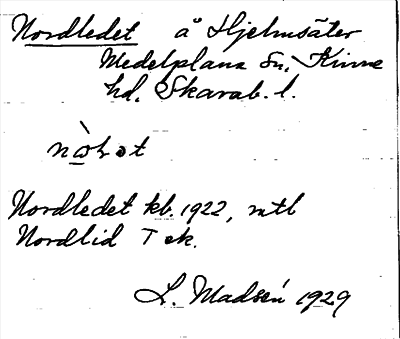 Nordledet å Hjelmsäter
Medelplana Sn, Kinne
hd. Skarab. l.
Nordledet kb. 1922, mtl
Nordlid T ek.
L. Madsén 1929